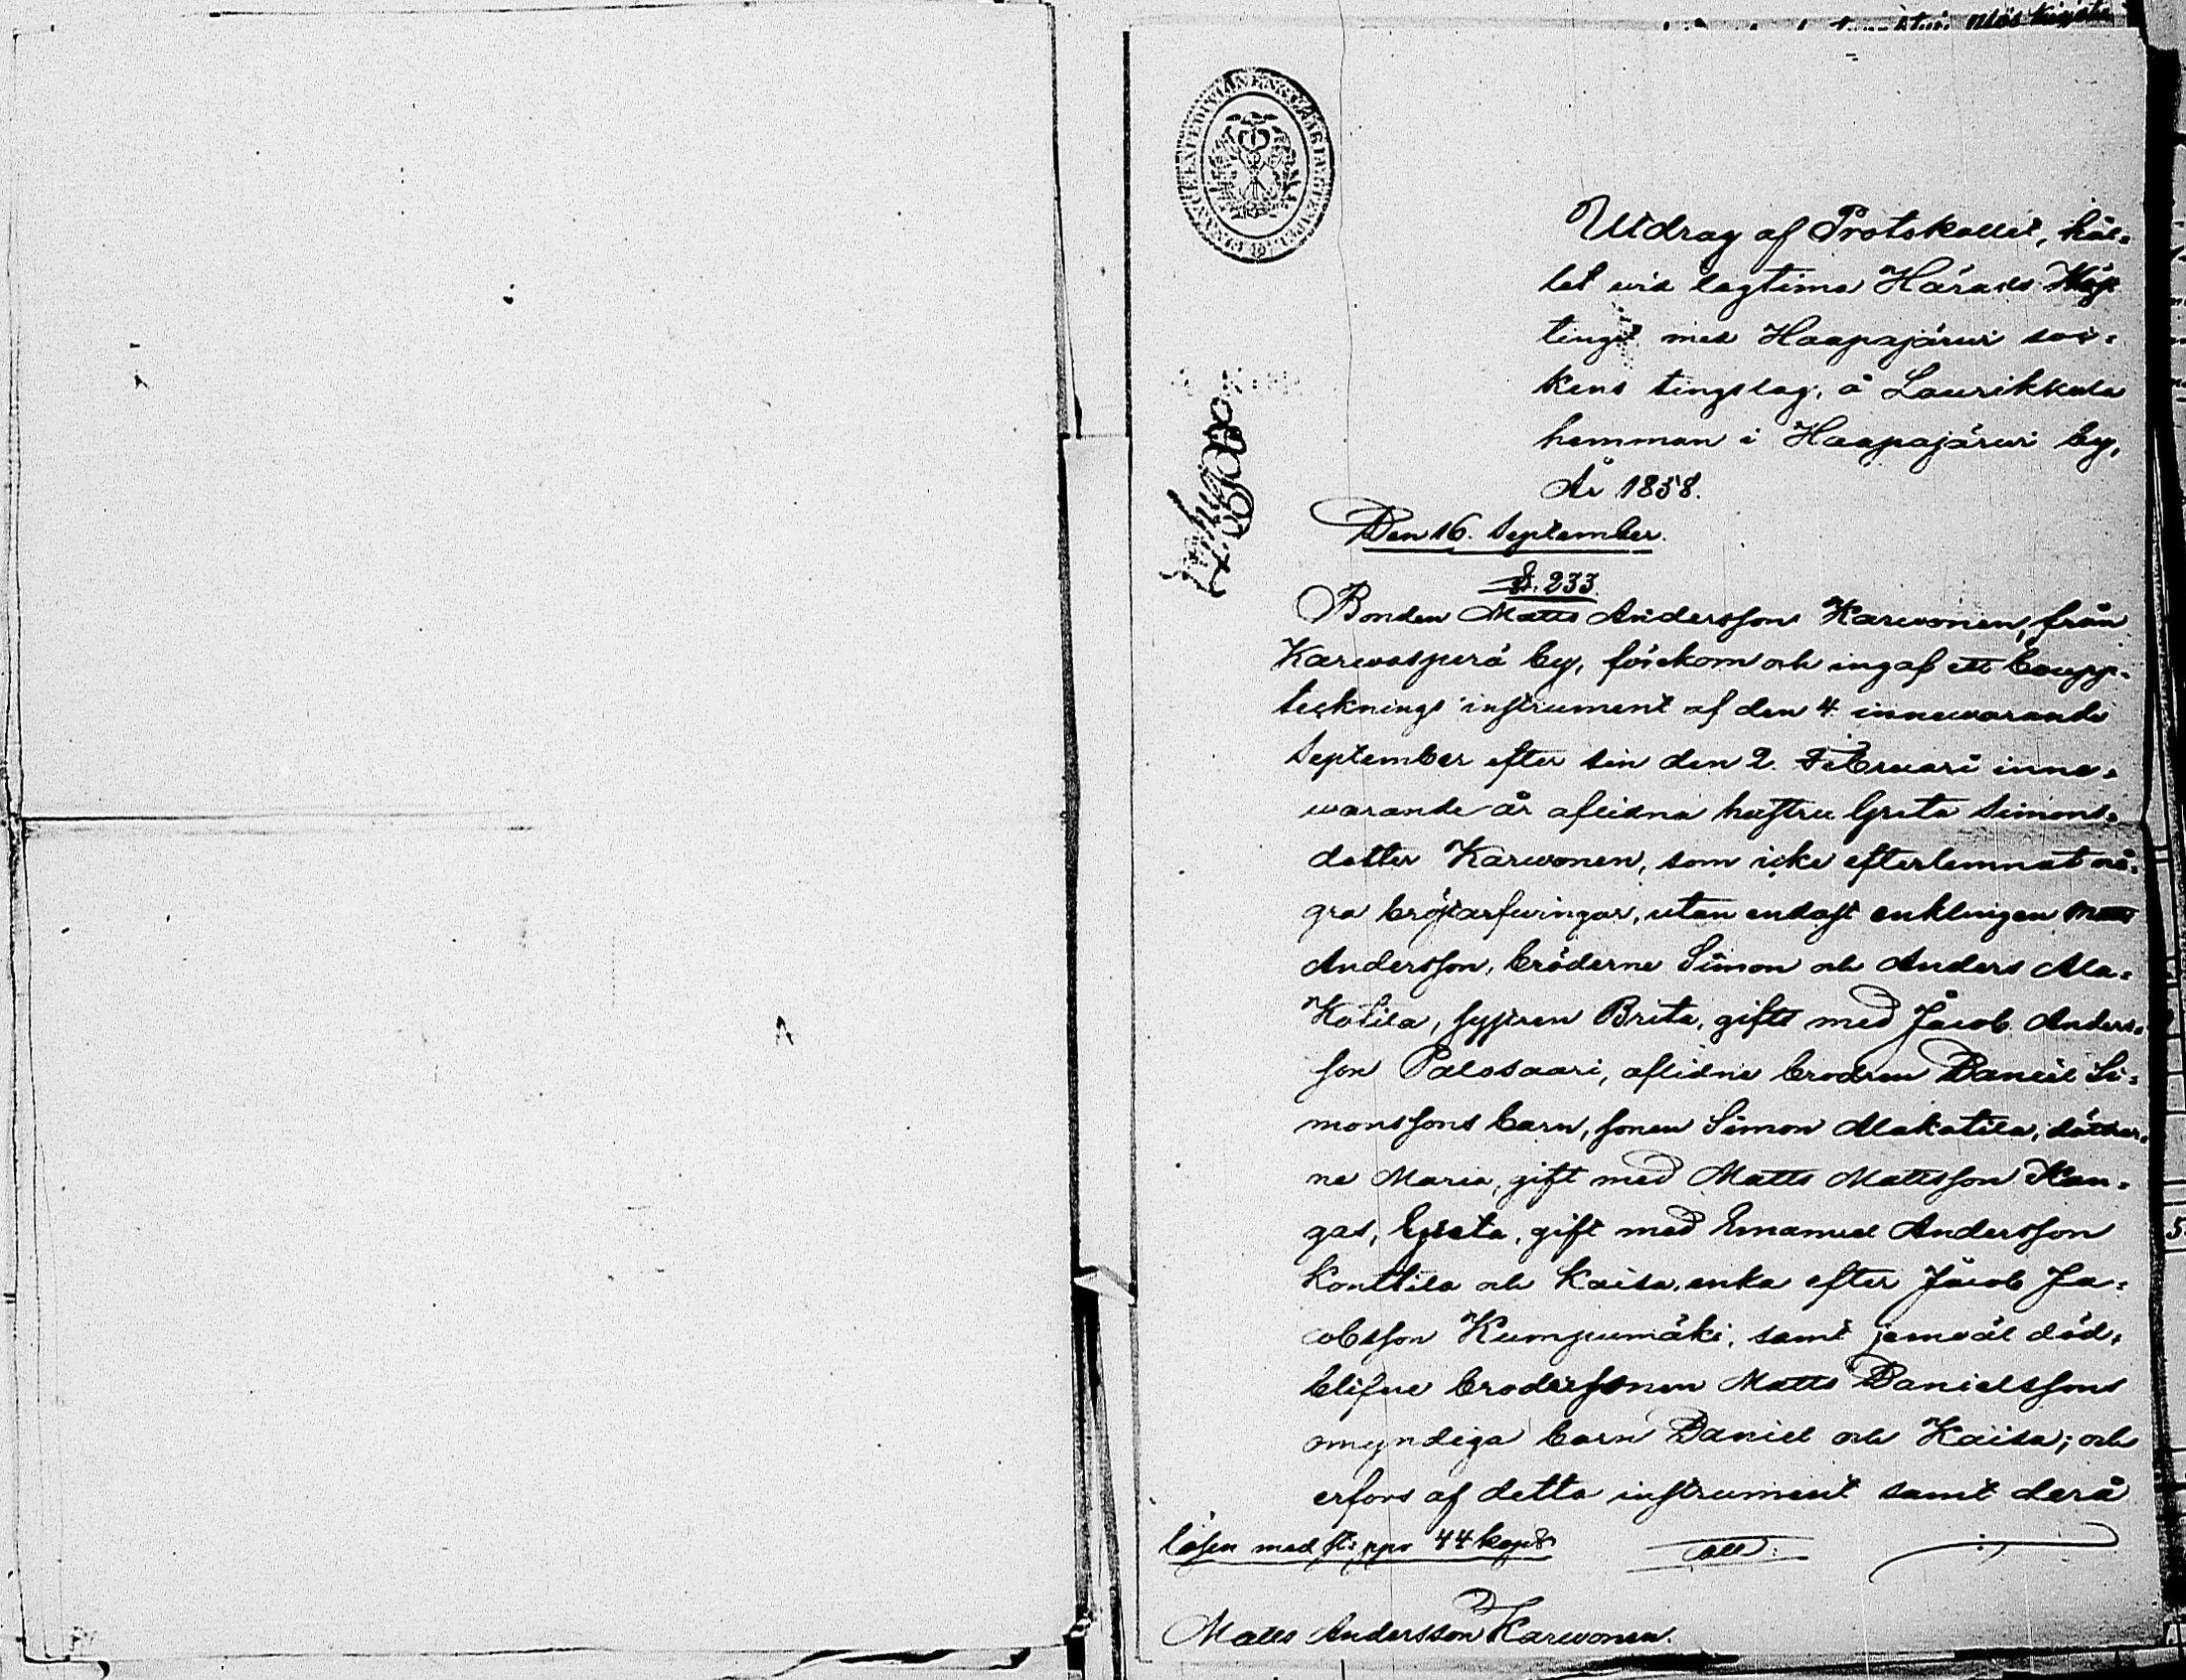 Utdrag af Protokollet, hål-
let vid lagtima Härads Hös
tinget med Haapajärwi soc-
kens tingslag, å Laurikkala
hemman i Haapajärwi by,
År 1858.
Den 16. September.
§. 233.
Bonden Matts Andersson Karwonen, från
Karwosperä by, förekom och ingaf ett boupp-
tecknings instrument af den 4 innewarande
September efter sin den 2. Februari inne-
warande år aflidna hustru Greta Simons-
dotter Karwonen, som icke efterlemnat nå-
gra bröstarfwingar, utan endast enklingen Matts
Andersson, bröderne Simon och Anders Ala-
Kotila, systren Brita, gift med Jacob Anders-
son Palosaari, aflidne brodren Daniel Si-
monssons barn, sonen Simon Alakotila, döttrar-
na Maria, gift med Matts Mattsson Kan-
gas, Greta, gift med Emanuel Andersson
Konttila och Kaisa, enka efter Jacob Ja-
cobsson Kumpumäki, samt jemväl död-
blifne brodersonen Matts Danielssons
omyndiga barn Daniel och Kaisa; och
erfors af detta instrument samt derå
lösen med st: ppr 44 kop S
Matts Andersson Karwonen.